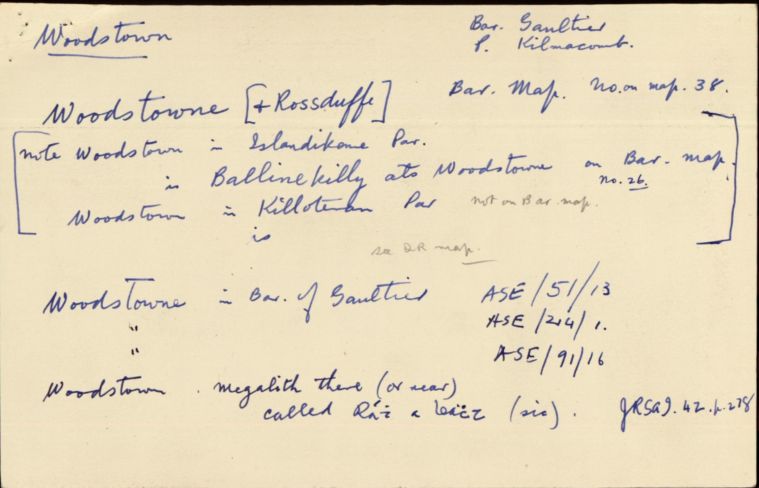 Woodstown
Bar. Gaultier
P. Kilmacomb.
Woodstowne [+ Rossduffe] Bar. Map. No. on map. 38.
[note Woodstown in Islandikane Par.
is Ballinekilly als Woodstowne on Bar. map.
no. 26.
Woodstown in Killoteran Par not on Bar. map.
is ]
see DR map.
Woodstowne in Bar. of Gaultier ASE/51/13
" ASE/214/1.
" ASE/91/16
Woodstown. megalith there (or near)
called a (sic). JRSAI. 42. p. 278